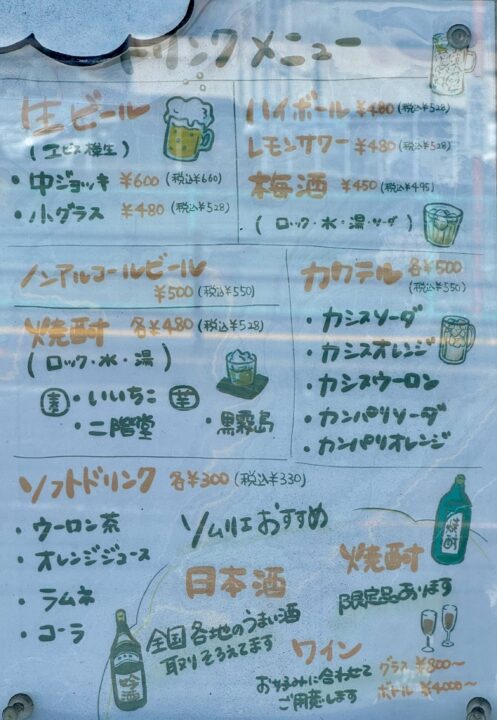 ドリンクメニュー
生ビール
(ヱビス樽生)
・中ジョッキ ¥600 (税込¥660)
・小グラス ¥480 (税込¥528)
ハイボール ¥480 (税込¥528)
レモンサワー ¥480 (税込¥528)
梅酒 ¥450 (税込¥495)
(ロック・水・湯・ソーダ)
ノンアルコールビール
¥500 (税込¥550)
焼酎 各¥480 (税込¥528)
(ロック・水・湯)
麦 ・いいちこ
・二階堂
芋 ・黒霧島
カクテル 各¥500
(税込¥550)
・カシスソーダ
・カシスオレンジ
・カシスウーロン
・カンパリソーダ
・カンパリオレンジ
ソフトドリンク 各¥300 (税込¥330)
・ウーロン茶
・オレンジジュース
・ラムネ
・コーラ
ソムリエおすすめ
日本酒
全国各地のうまい酒
取りそろえてます
吟酒
焼酎
限定品あります
焼酎
ワイン
おこのみに合わせて
ご用意します
グラス ¥800〜
ボトル ¥4000〜